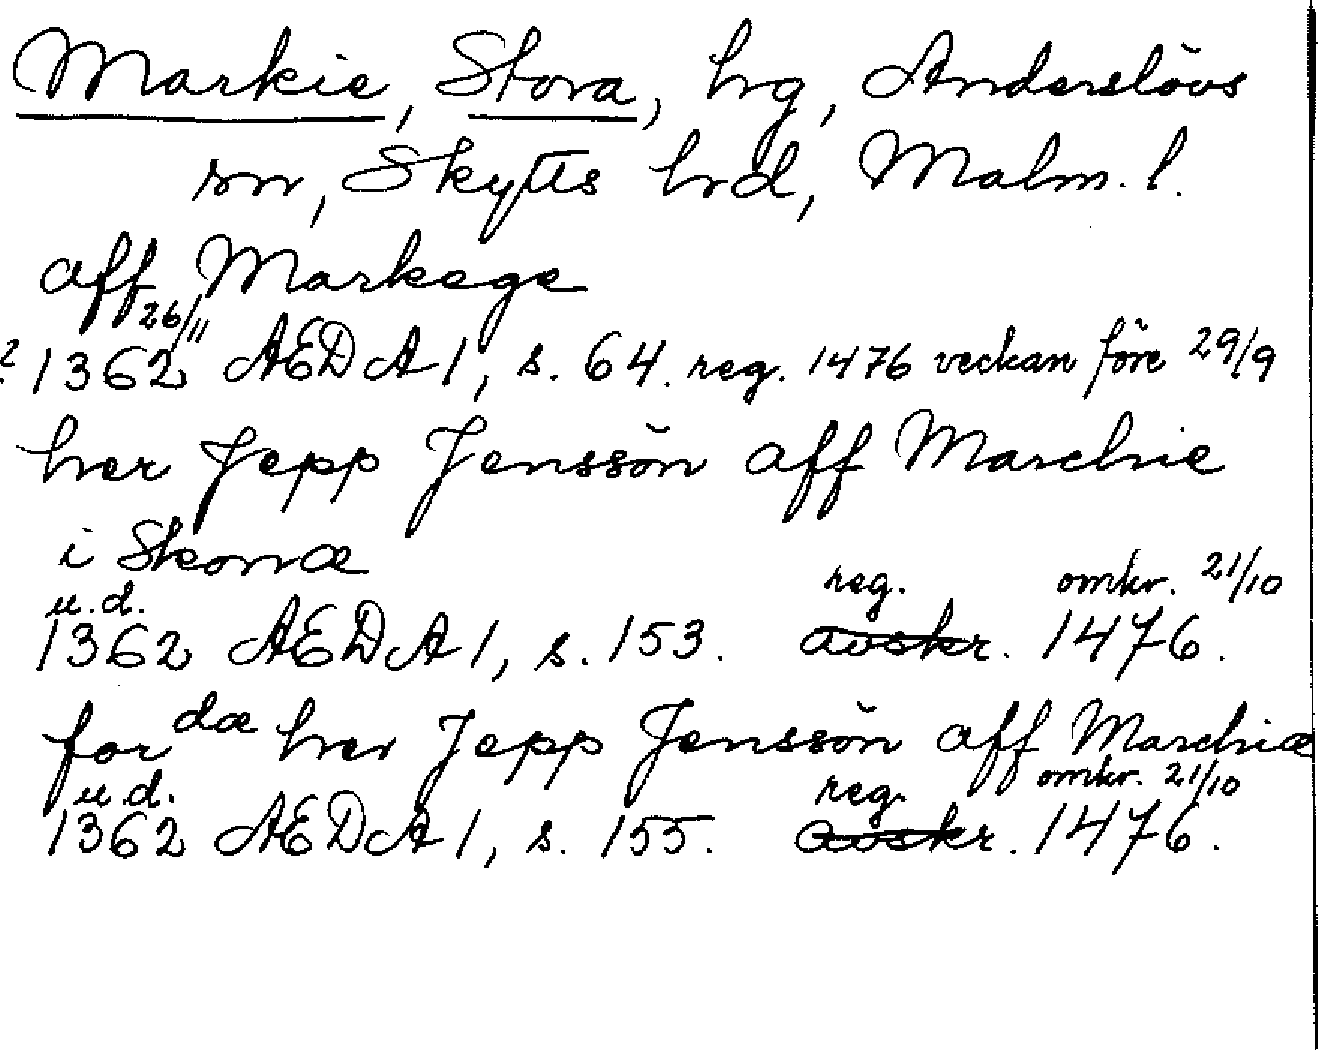 Markie, Stora, hg, Anderslövs
sn, Skytts hrd, Malm. l.
aff Markege
26/11
? 1362 AEDA 1, s. 64. reg. 1476 veckan före 29/9
her Jepp Jenssön aff Marchie
i Skonæ
u.d. reg. omkr. 21/10
1362 AEDA 1, s. 153. avskr. 1476.
for dæ her Jepp Jenssön aff Marchiæ
u.d. reg. omkr. 21/10
1362 AEDA 1, s. 155. avskr. 1476.